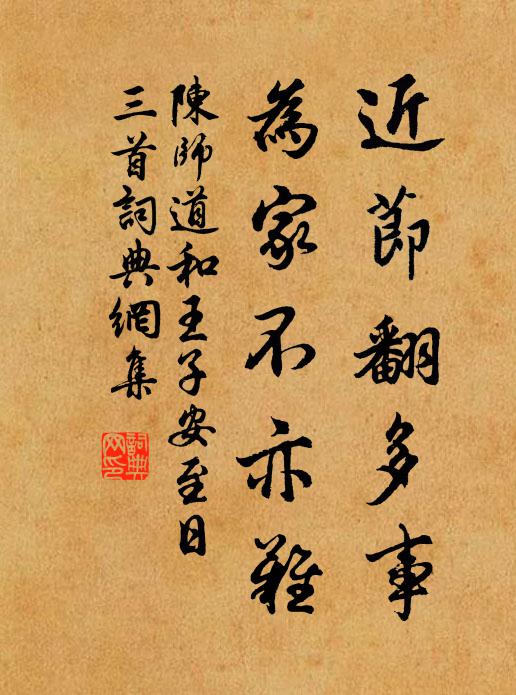 近節翻多事
為家不亦難
陳師道和王子安至日
三首詞典網集
詞典
网印